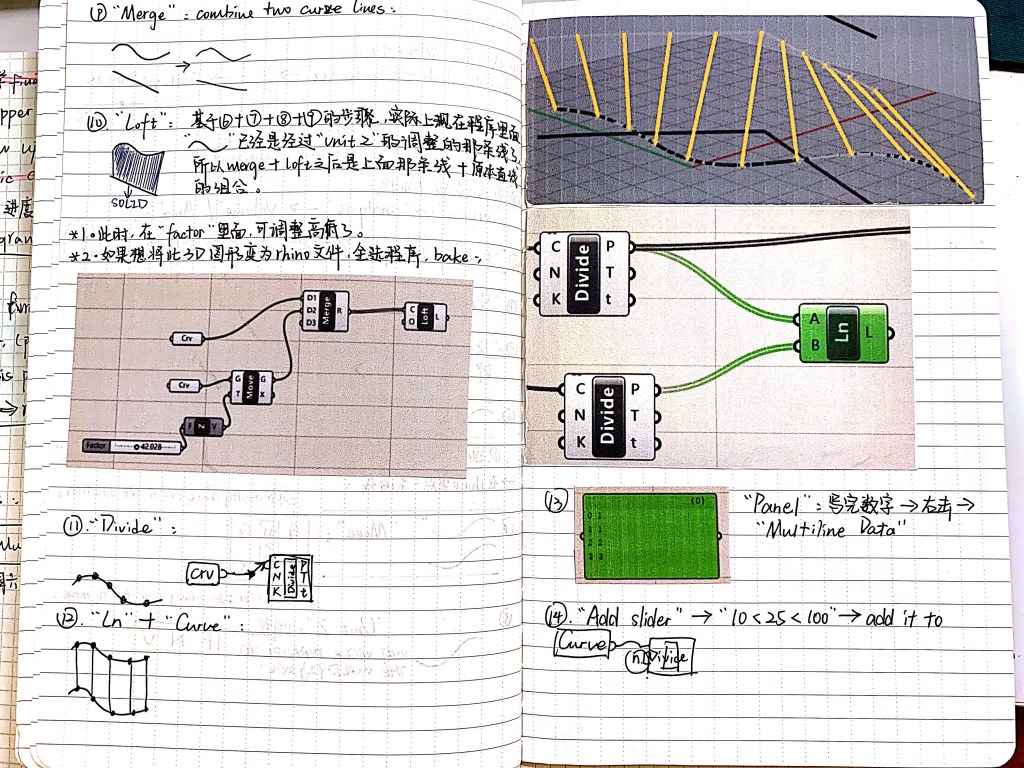 ⑨ "Merge": combine two curve lines:
⑩ "Loft": 基于⑥+⑦+⑧+⑨的步骤,实际上现在程序里面
"～"已经是经过"unit z"的调整的那条线了,
所以merge + Loft之后是上面那条线 + 原来直线
的组合。
SOLID
*1.此时,在"factor"里面,可调整高度了。
*2.如果想将此3D图形变为rhino文件,全选程序,bake;
D1
D2
D3
Merge
R
C
O
Loft
L
Crv
Crv
G
T
Move
G
X
F
Z
V
Factor
42.028
⑪."Divide":
Crv
C
N
K
Divide
P
T
t
⑫."Ln" + "Curve":
C
N
K
Divide
P
T
t
A
B
Ln
L
C
N
K
Divide
P
T
t
⑬
{0}
0 1
1 1
2 2
3 3
"Panel": 写完数字→右击→
"Multiline Data"
⑭."Add slider" → "10<25<100" → add it to
Curve
n
Divide